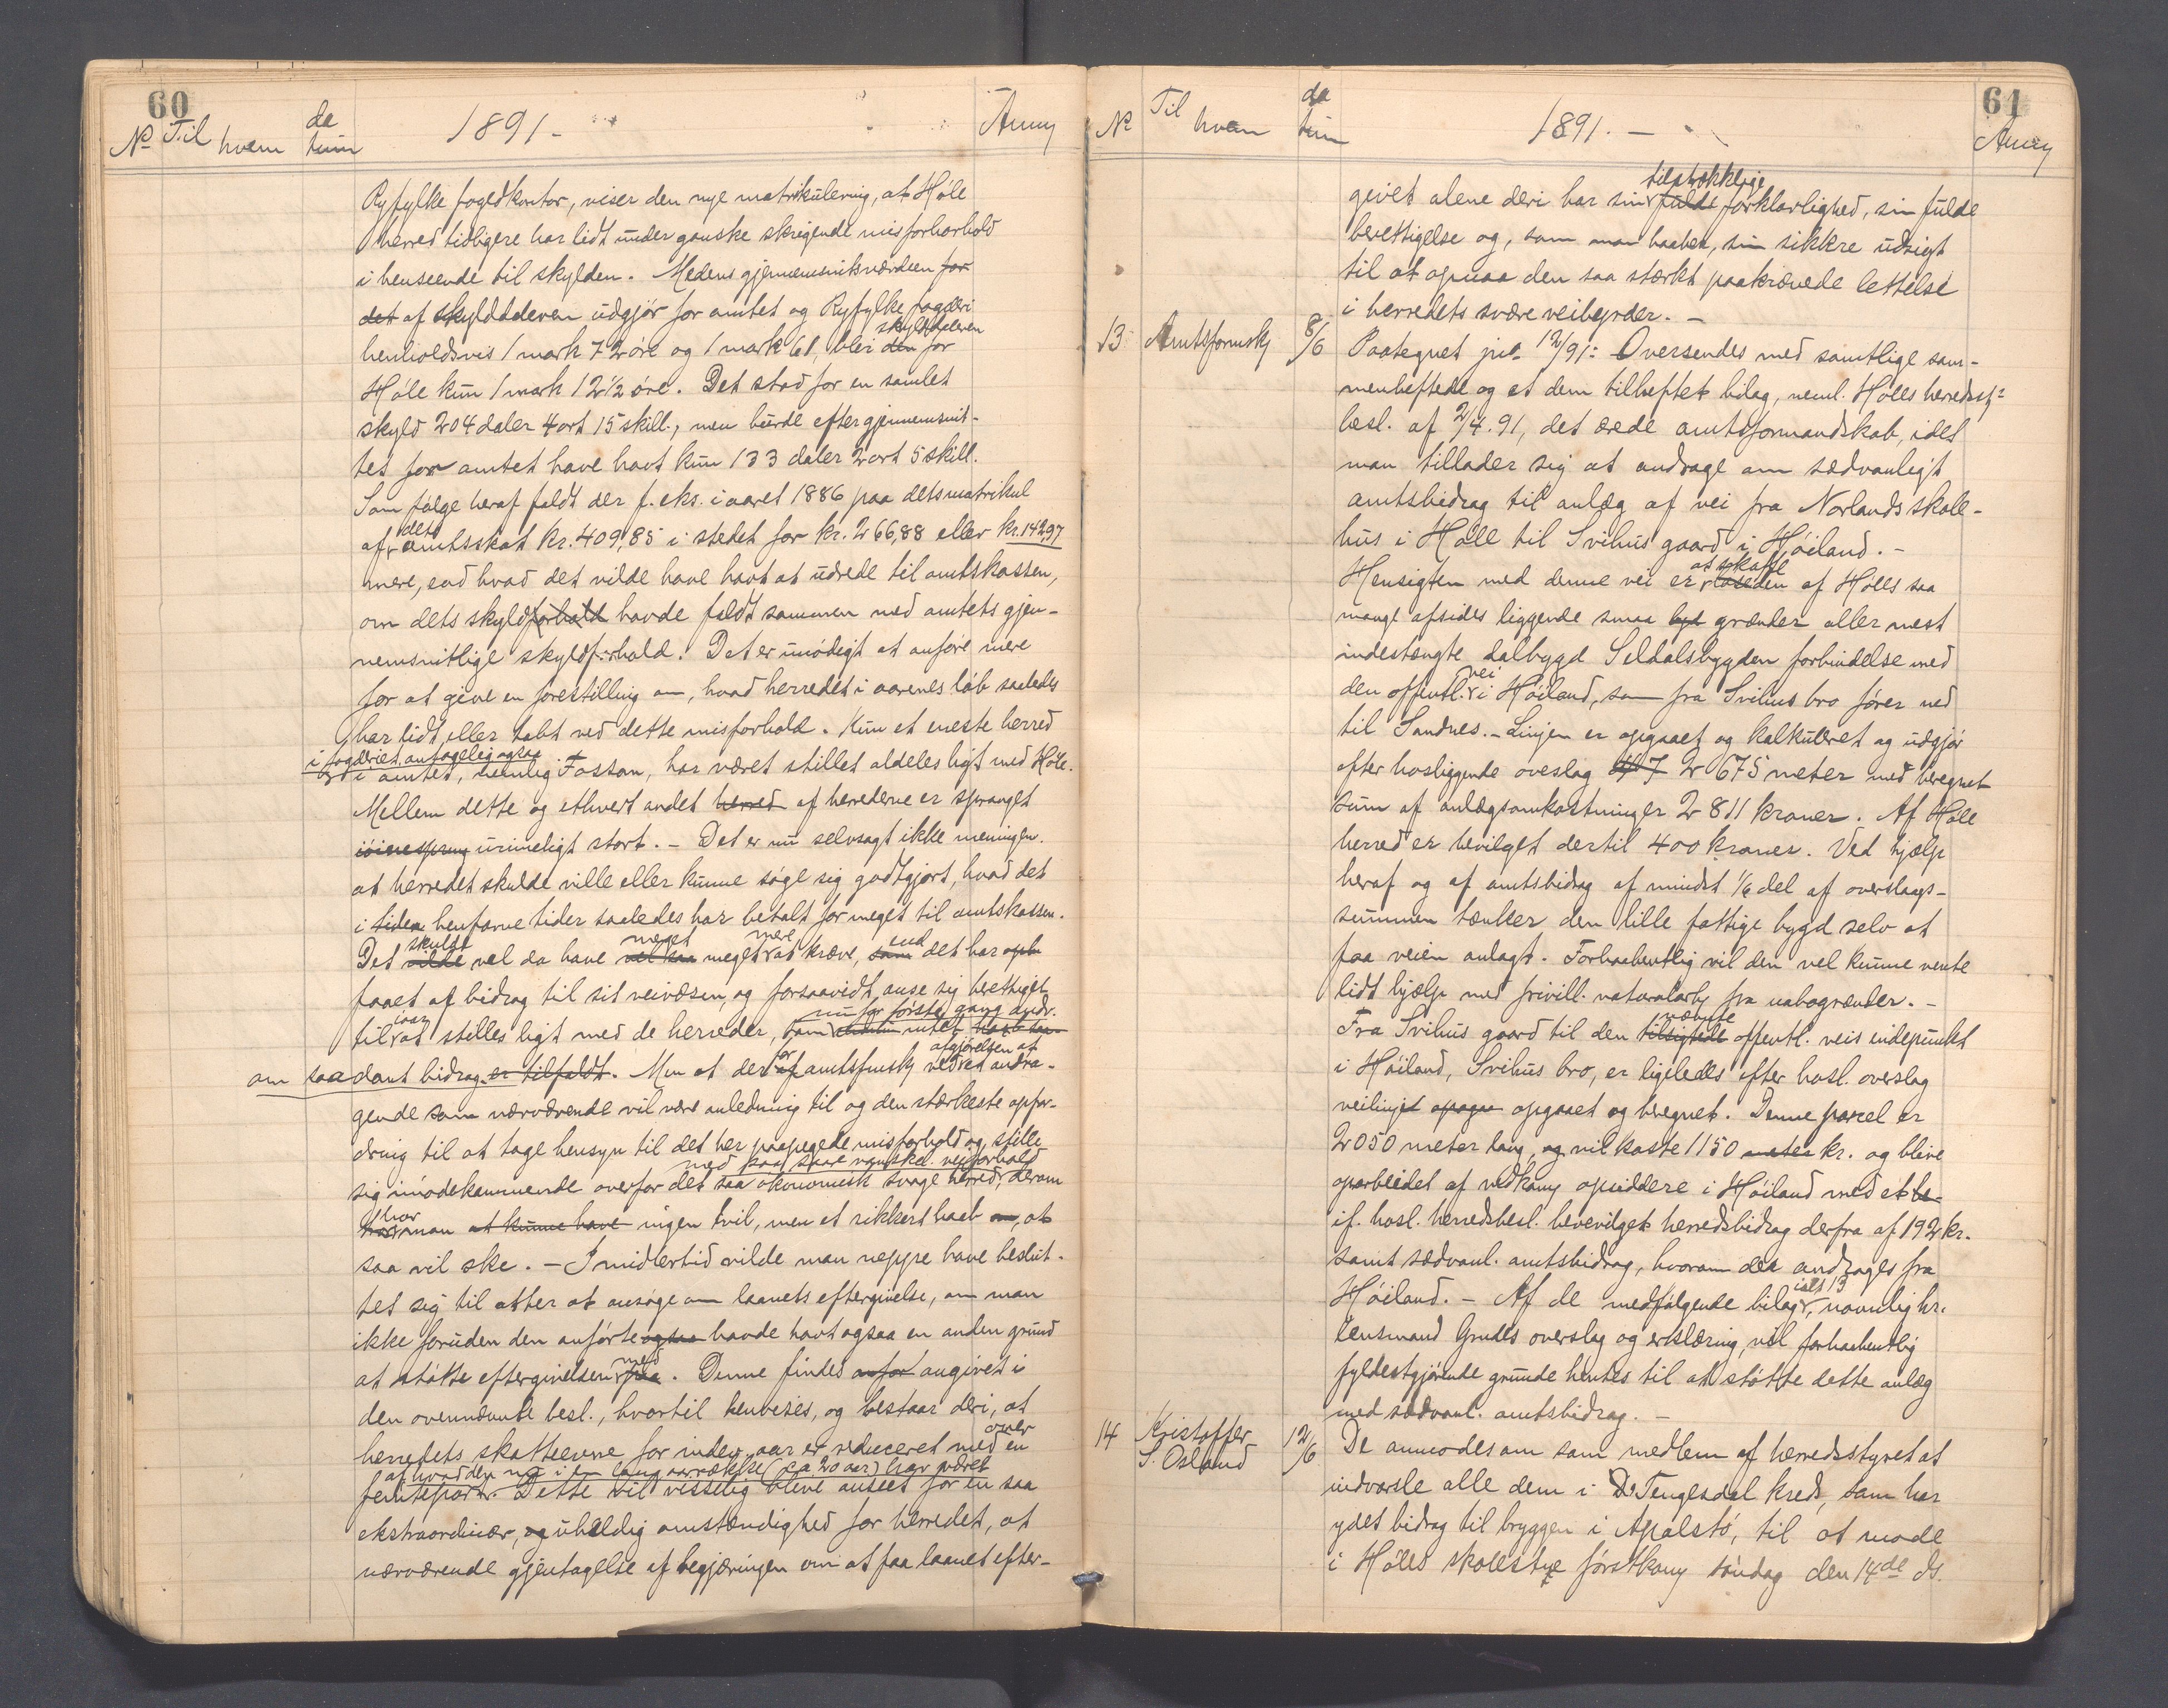 60
No Til hvem datum 1891 - Anm
Ryfylke fogedkontor, viser den nye matrikulering, at Høle
herred tidligere har lidt under ganske skrigende misforhorhold
i henseende til skylden. Medens gjennemsnitsværdien for
det af skylddaleren udgjør for amtet og Ryfylke fogderi
skylddaleren
henholdsvis 1 mark 72 øre og 1 mark 61, blir den for
Høle kun 1 mark 12 1/2 øre. Det stod for en samlet
skyld 204 daler 4 ort 15 skill., men burde efter gjennemsnit-
tet for amtet have havt kun 133 daler 2 ort 5 skill.
Som følge heraf faldt der f. eks. i aaret 1886 paa dets matrikul
dets
af amtsskat kr. 409,85 i stedet for kr. 266,88 eller kr. 142,97
mere, end hvad det vilde have havt at udrede til amtskassen,
om dets skyldforhold havde faldt sammen med amtets gjen-
nemsnitlige skyldforhold. Det er unødigt at anføre mere
for at give en forestilling om, hvad herredet i aarenes løb saaledes
har lidt eller tabt ved dette misforhold. Kun et eneste herred
i fogderiet, antagelig ogsaa
i amtet, nemlig Fossan, har været stillet aldeles ligt med Høle.
Mellem dette og ethvert andet herred af herrederne er spranget
urimeligt stort. - Det er nu selvsagt ikke meningen.
at herredet skulde ville eller kunne søge sig godtgjort, hvad det
i tiden henfarne tider saaledes har betalt for meget til amtskassen.
skulde meget mere end
Det vilde vel da have vel saa meget at kræve, som det har opb
faaet af bidrag til sit veivæsen, og forsaavidt anse sig berettiget
iaar nu for første gang andr.
til at stilles ligt med de herreder, som intet
afgjørelsen af
om saadant bidrag er tilfaldt. Men at der for af amtsfmsk ved andra-
gende som nærværende vil være anledning til og den stærkeste opfor-
dring til at tage hensyn til det her paapegede misforhold og stille
med saa svare vanskel. veiforhold
sig imødekommende overfor det saa økonomisk svage herred, derom
har
man at kunne have ingen tvil, men et sikkert haab om, at
saa vil ske. - Imidlertid vilde man neppe have beslut-
tet sig til atter at ansøge om laanets eftergivelse, om man
ikke foruden den anførte ogsaa havde havt ogsaa en anden grund
med
at støtte eftergivelsen paa. Denne findes anfør angivet i
den ovennævnte besl., hvortil henvises, og bestaar deri, at
over
herredets skatteevne for inden aar er reduceret med en
af hvad den nu i en lang aarrække (ca 20 aar) har været
femtepart. Dette vil visselig blive anseet for en saa
ekstraordinær, og uheldig omstændighed for herredet, at
nærværende gjentagelse af begjæringen om at faa laanet efter-
61
No Til hvem datum 1891. - Anm
tilstrækkelige
givet alene deri har sin fulde forklarlighed, sin fulde
berettigelse og, som man haaber, sin sikkre udsigt
til at opnaa den saa stærkt paakrævede lettelse
i herredets svære veibyrder. -
13 Amtsformsk 8/6 Paategnet jno 12/91: Oversendes med samtlige sam-
menheftede og et dem tilheftet bilag, neml. Høles herredsst
besl. af 2/4.91, det ærede amtsformandskab, idet
man tillader sig at andrage om sædvanligt
amtsbidrag til anlæg af vei fra Norlands skole-
hus i Høle til Svihus gaard i Høiland. -
at skaffe
Hensigten med denne vei er af Høles saa
mange afsides liggende smaa byd grænder aller mest
indestængte dalbygd Seldalsbygden forbindelse med
vei
den offentl. i Høiland, som fra Svihus bro fører ned
til Sandnes. - Linjen er opgaaet og kalkuleret og udgjør
efter hosliggende oveslag 2675 meter med beregnet
sum af anlægsomkostninger 2811 kroner. Af Høle
herred er bevilget dertil 400 kroner. Ved hjælp
heraf og af amtsbidrag af mindst 1/6 del af overslags-
summen tænker den lille fattige bygd selv at
faa veien anlagt. Forhaabentlig vil den vel kunne vente
lidt hjælp med frivill. naturalarb. fra nabogrænder. -
nævnte
Fra Svihus gaard til den tilsigtede offentl. veis endepunkt
i Høiland, Svihus bro, er ligeledes efter hosl. overslag
veilinjet opgaa opgaaet og beregnet. Denne parcel er
2050 meter lang, og vil koste 1150 meter kr. og blive
oparbeidet af vedkom opsiddere i Høiland med et be
if. hosl. herredsbesl. bevevilget herredsbidrag derfra af 192 kr.
samt sædvanl. amtsbidrag, hvorom der andrages fra
ialt 13
Høiland. - Af de medfølgende bilag, navnlig hr.
lensmand Grudes overslag og erklæring, vil forhaabentlig
fyldestgjørende grunde hentes til at støtte dette anlæg
med sædvanl. amtsbidrag. -
14 Kristoffer S. Osland 12/6 De anmodes om som medlem af herredsstyret at
indvarsle alle dem i Tengesdal kreds, som har
ydet bidrag til bryggen i Apalstø, til at møde
i Høles skolestue førstkom søndag den 14de ds.